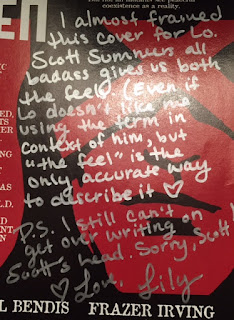 EN
coexistence as a reality.
I almost framed
this cover for Lo.
Scott Summers all
badass gives us both
the feels. (Even if
Lo doesn't like me
using the term in
context of him, but
"the feel" is the
only accurate way
to describe it ♡
P.S. I still can't
get over writing on
Scott's head. Sorry, Scott!
♡ Love, Lily
L BENDIS FRAZER IRVING